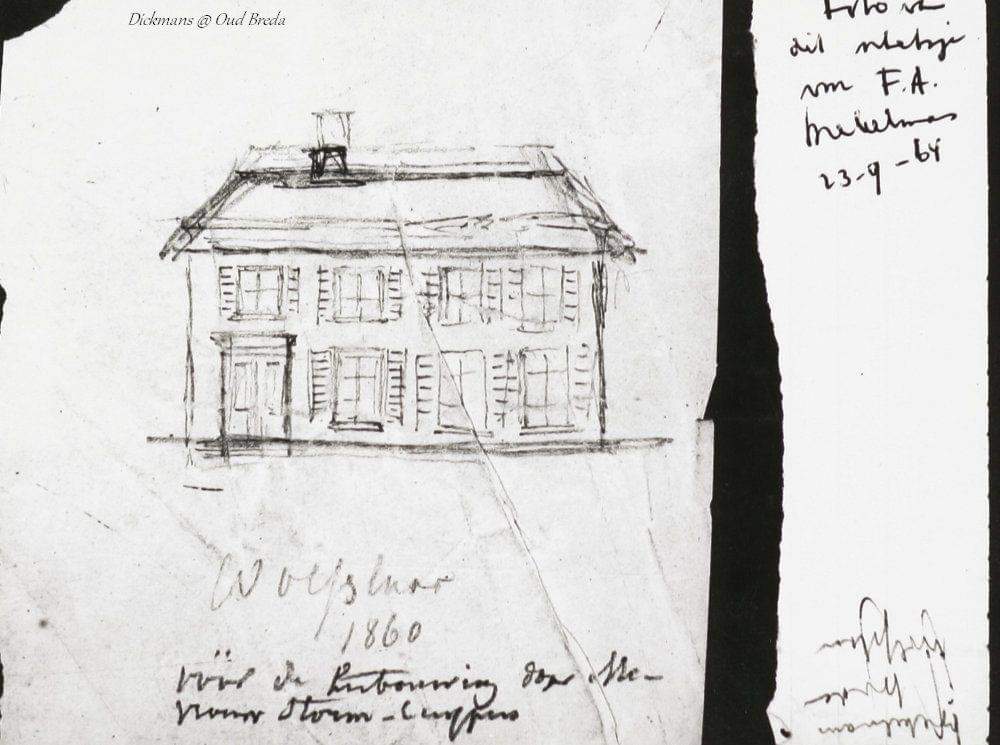 Dickmans @ Oud Breda
Foto v
dit
van F.A.
Brekelmans
23-9-64
Wolfslaar
1860
vóór de verbouwing door Me-
vrouw Storm-Cuypers